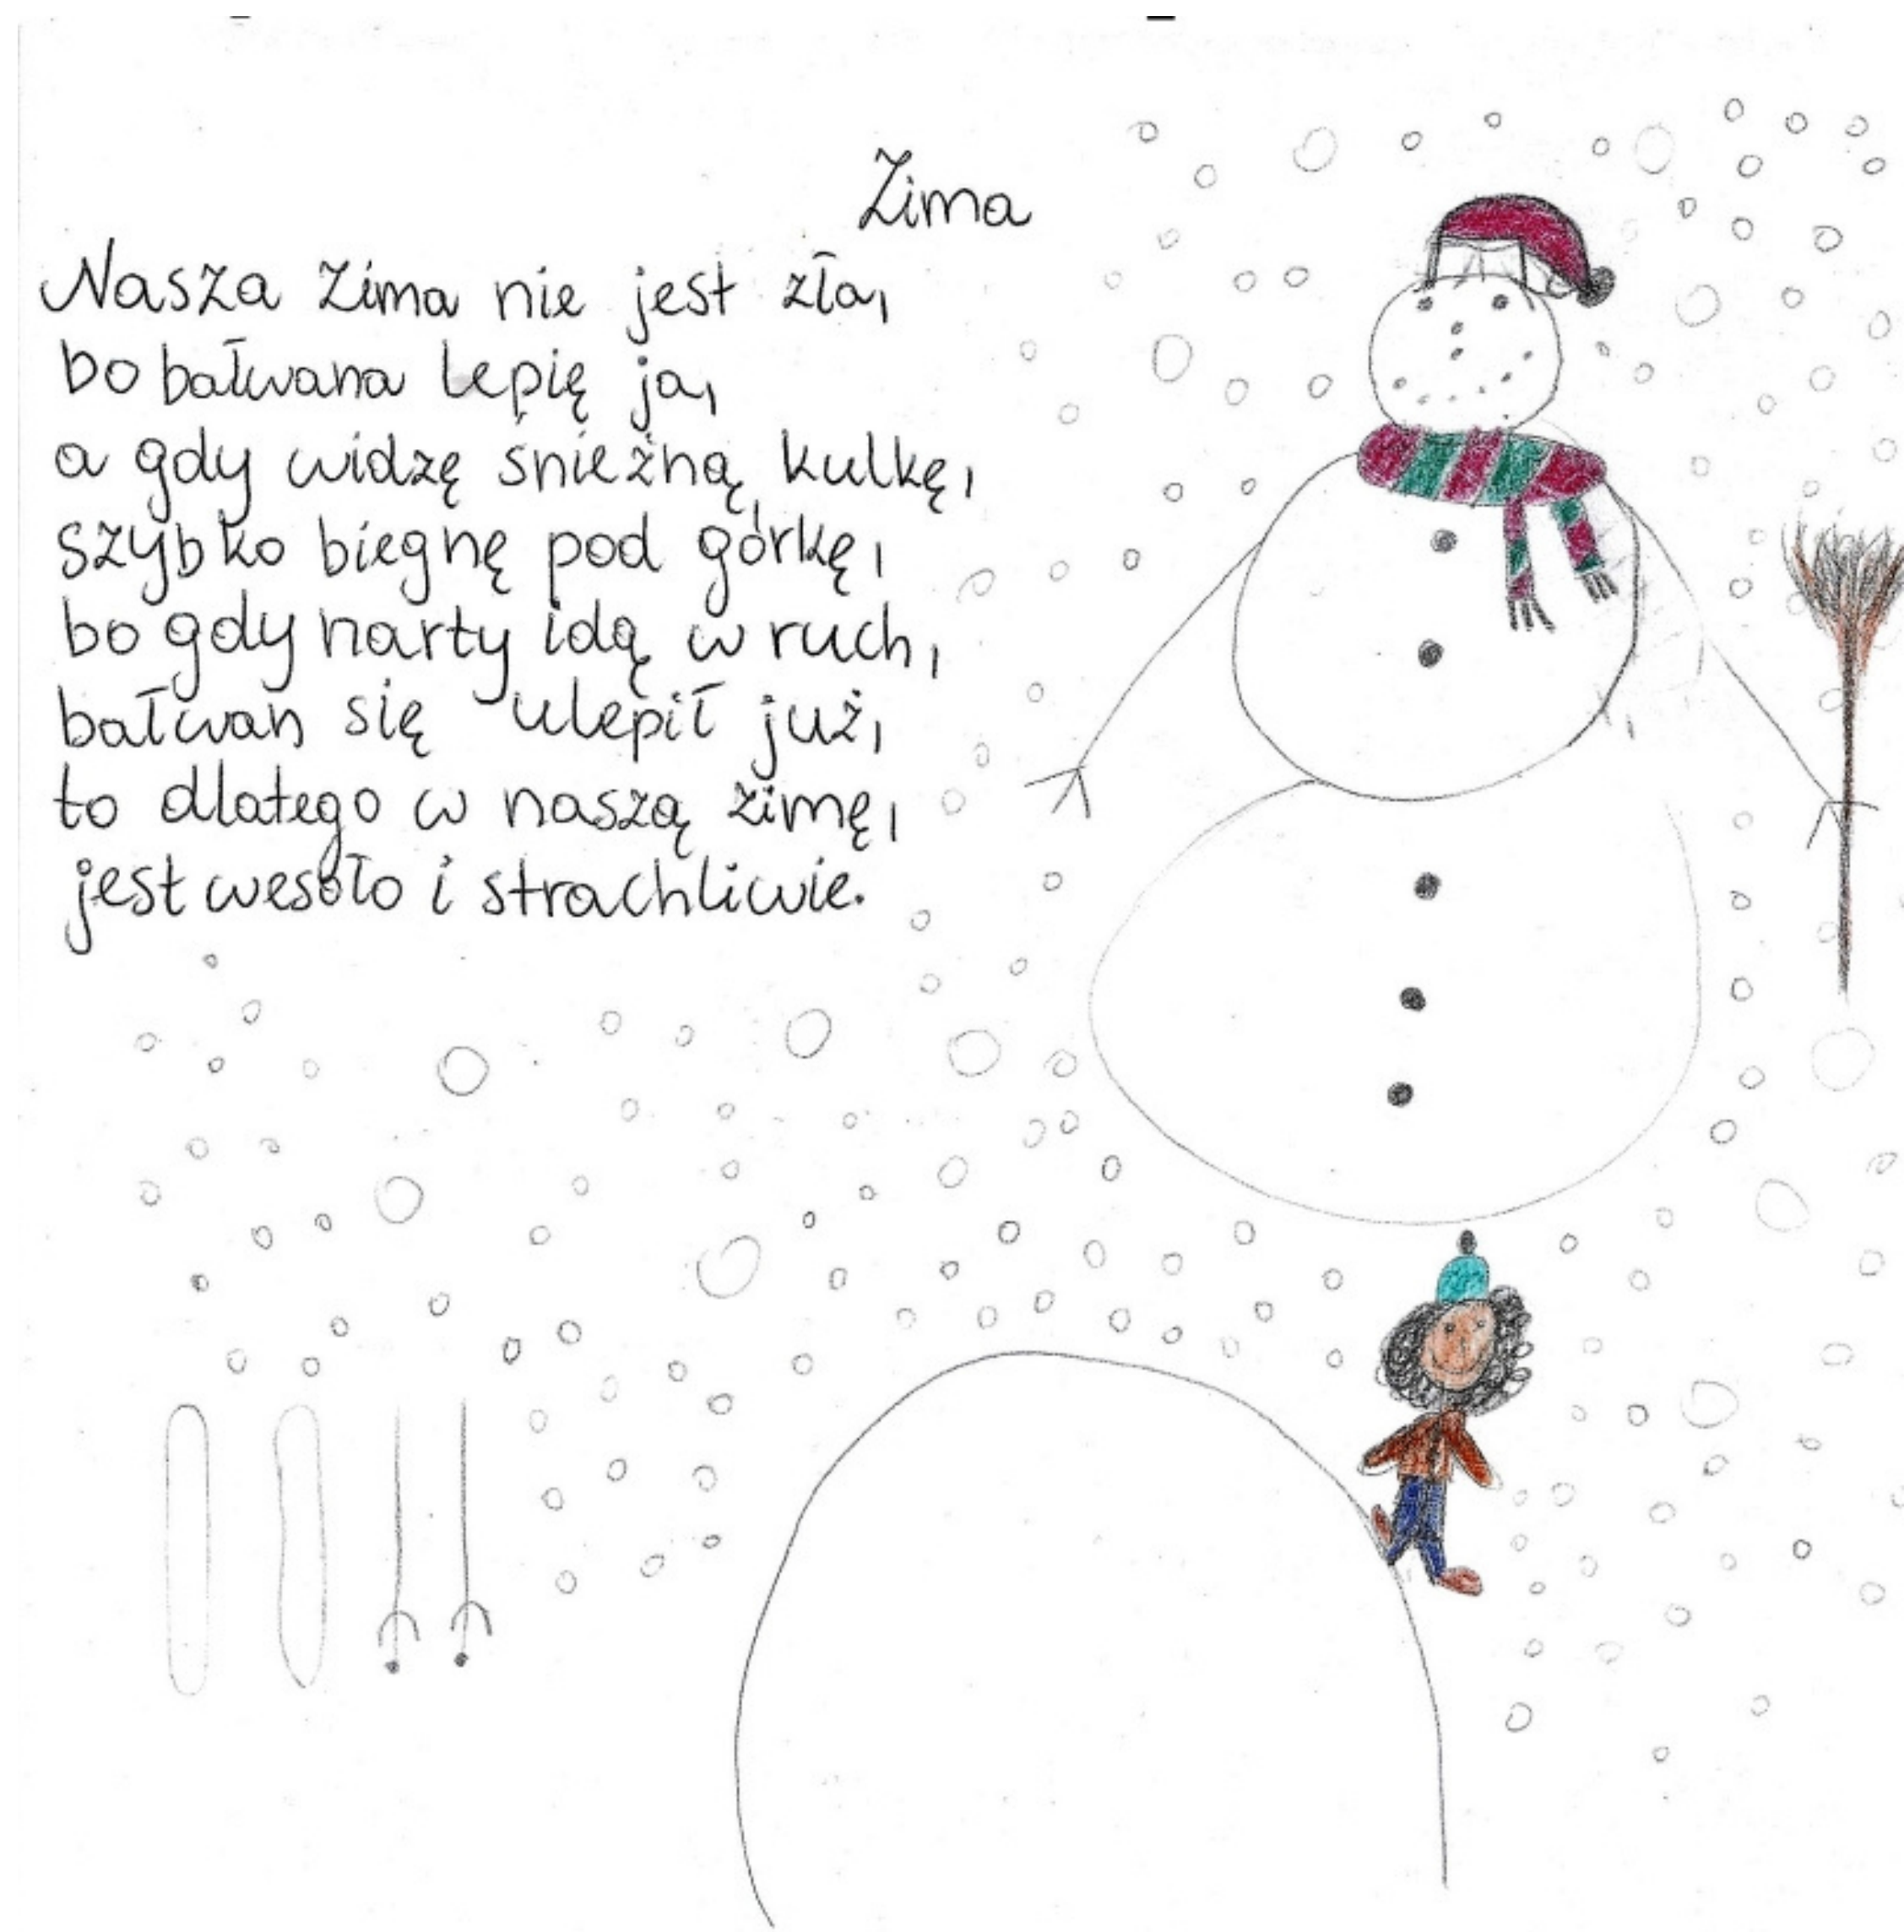 Zima
Nasza zima nie jest zła,
bo bałwana lepię ja,
a gdy widzę śnieżną kulkę,
szybko biegnę pod górkę,
bo gdy narty idą w ruch,
bałwan się ulepił już,
to dlatego w naszą zimę,
jest wesoło i strachliwie.